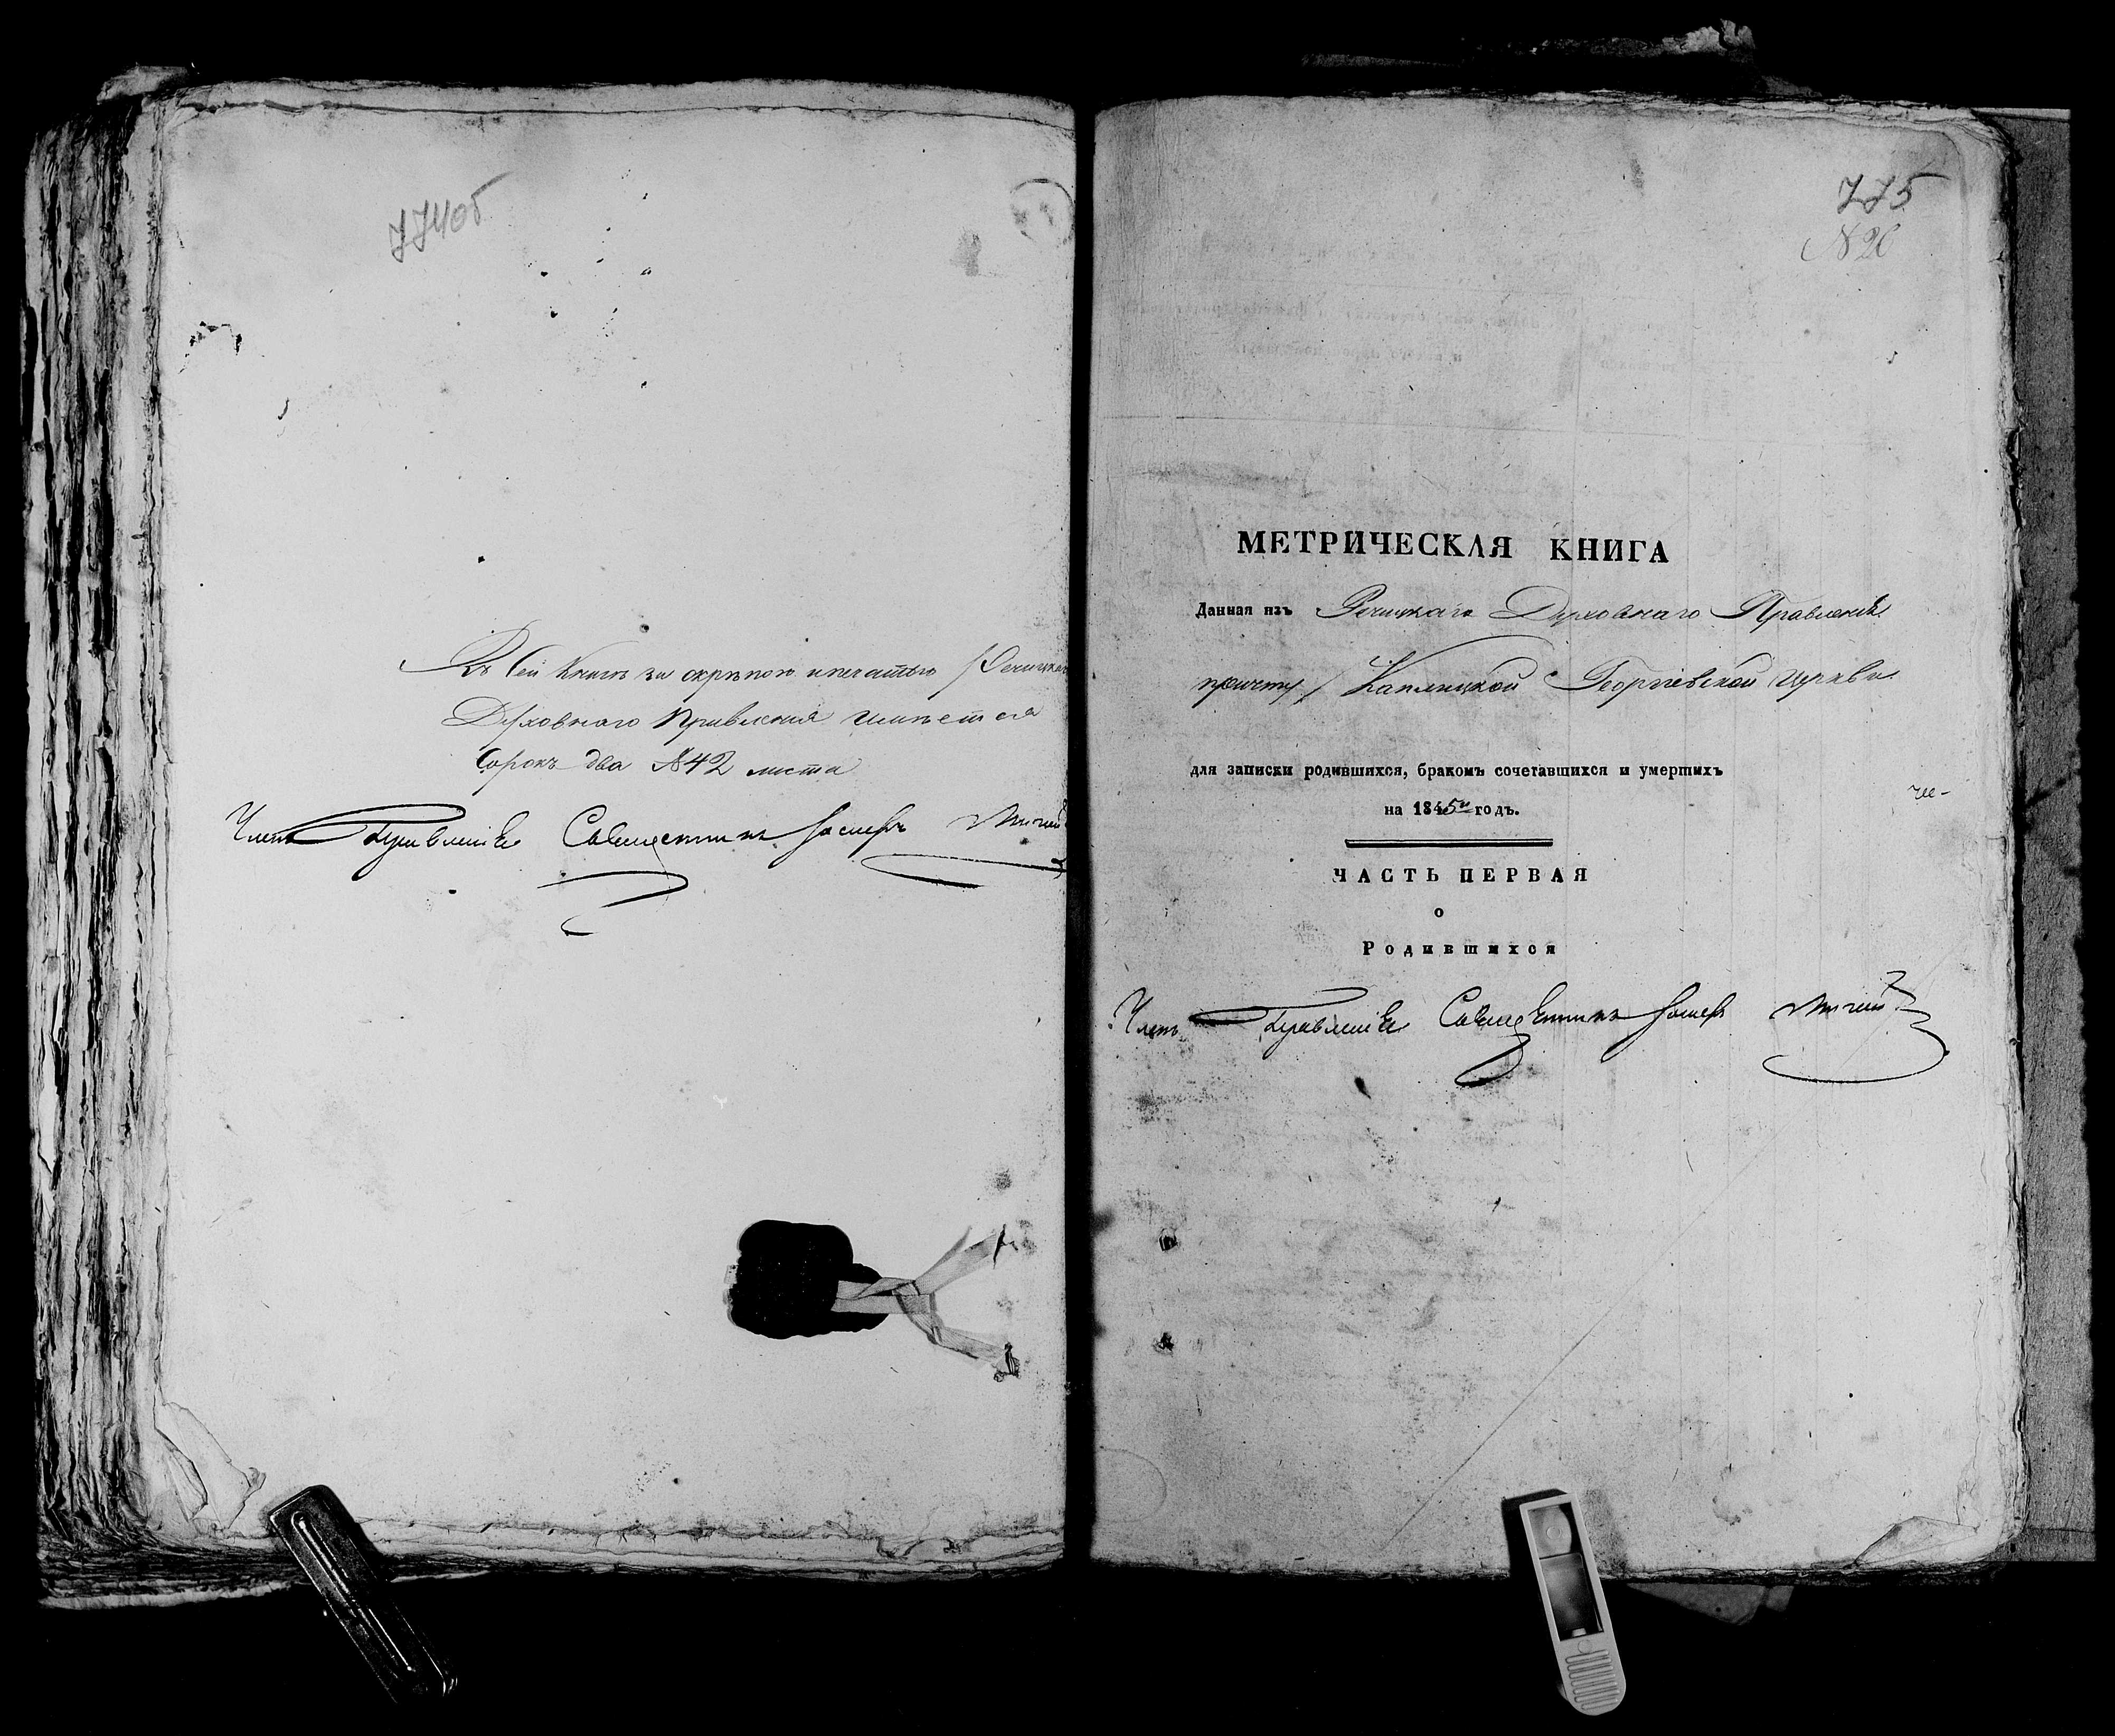 774об
Въ Сей Книгѣ за скрѣпою и печатью Речицкаго
Духовнаго Правленія имѣется
Сорокъ два №42 листа
Членъ Правленія Священникъ
775
№ 20
МЕТРИЧЕСКАЯ КНИГА
Данная изъ Речицкаго Духовнаго Правленія
причту Каплицкой Георгіевской церкви
для записки родившихся, бракомъ сочетавшихся и умершихъ
на 1845й годъ.
ЧАСТЬ ПЕРВАЯ
о
Родившихся
Членъ Правленія Священникъ